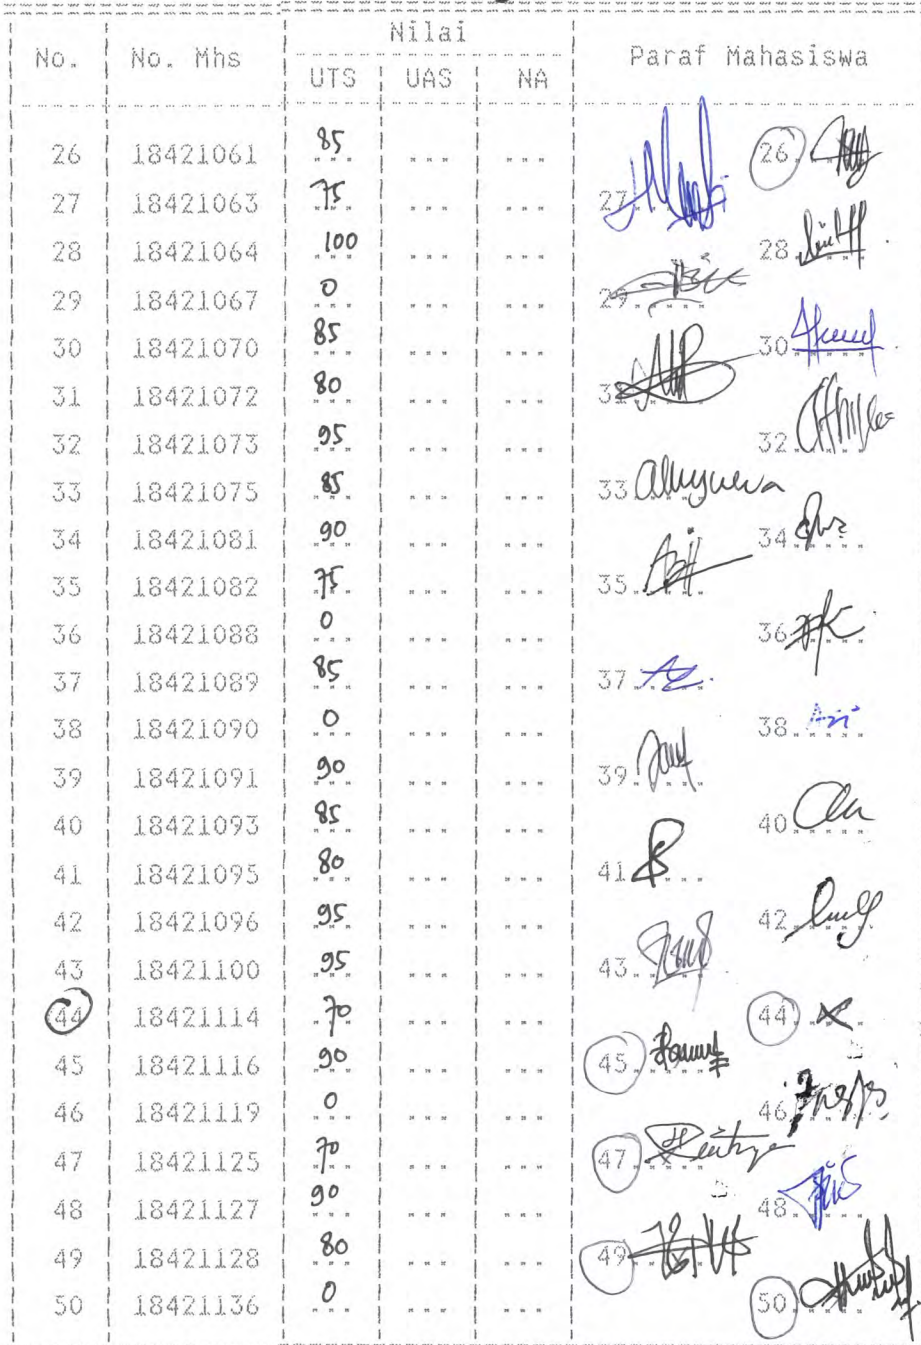 Nilai
No. No. Mhs Paraf Mahasiswa
UTS UAS NA
26 18421061 85 ... ... 26.
27 18421063 75 ... ... 27.
28 18421064 100 ... ... 28.
29 18421067 0 ... ... 29.
30 18421070 85 ... ... 30.
31 18421072 80 ... ... 31.
32 18421073 95 ... ... 32.
33 18421075 85 ... ... 33.
34 18421081 90 ... ... 34.
35 18421082 75 ... ... 35.
36 18421088 0 ... ... 36.
37 18421089 85 ... ... 37.
38 18421090 0 ... ... 38.
39 18421091 90 ... ... 39.
40 18421093 85 ... ... 40.
41 18421095 80 ... ... 41.
42 18421096 95 ... ... 42.
43 18421100 95 ... ... 43.
44 18421114 70 ... ... 44.
45 18421116 90 ... ... 45.
46 18421119 0 ... ... 46.
47 18421125 70 ... ... 47.
48 18421127 90 ... ... 48.
49 18421128 80 ... ... 49.
50 18421136 0 ... ... 50.